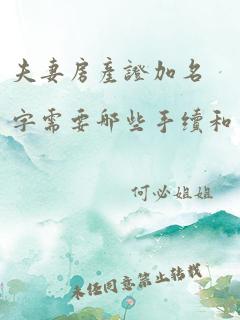 夫妻房產證加名
字需要哪些手續和
何必姐姐
未经同意禁止转载